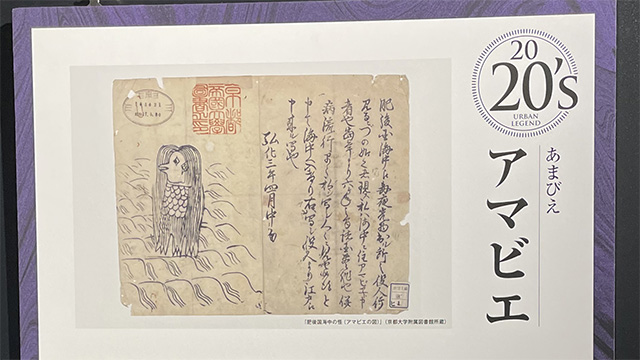 20
20's
URBAN
LEGEND
あまびえ
アマビエ
肥後国海中え毎夜光物出ル所之役人行
見るニづの如く者現ス私ハ海中ニ住アマビヱト申
者也当年より六ヶ年之間諸国豊作也併
病流行早々私シ写シ人々ニ見セ候得と
申て海中へ入けり右写シ役人より江戸え
申来ル写也
弘化三年四月中旬
京都帝國大學圖書之印
「肥後国海中の怪（アマビエの図）」（京都大学附属図書館所蔵）